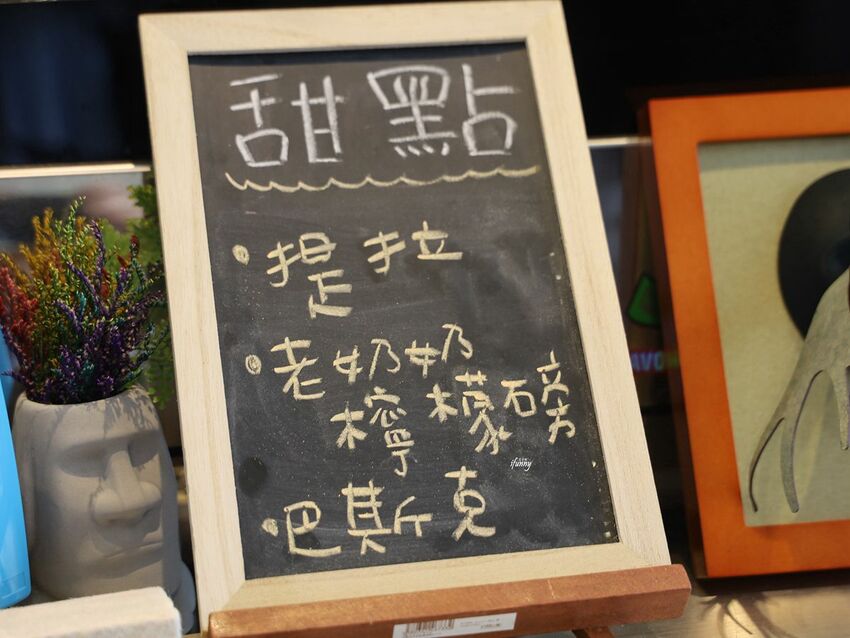 甜點
• 提拉
• 老奶奶
檸檬磅
• 巴斯克
ifunny